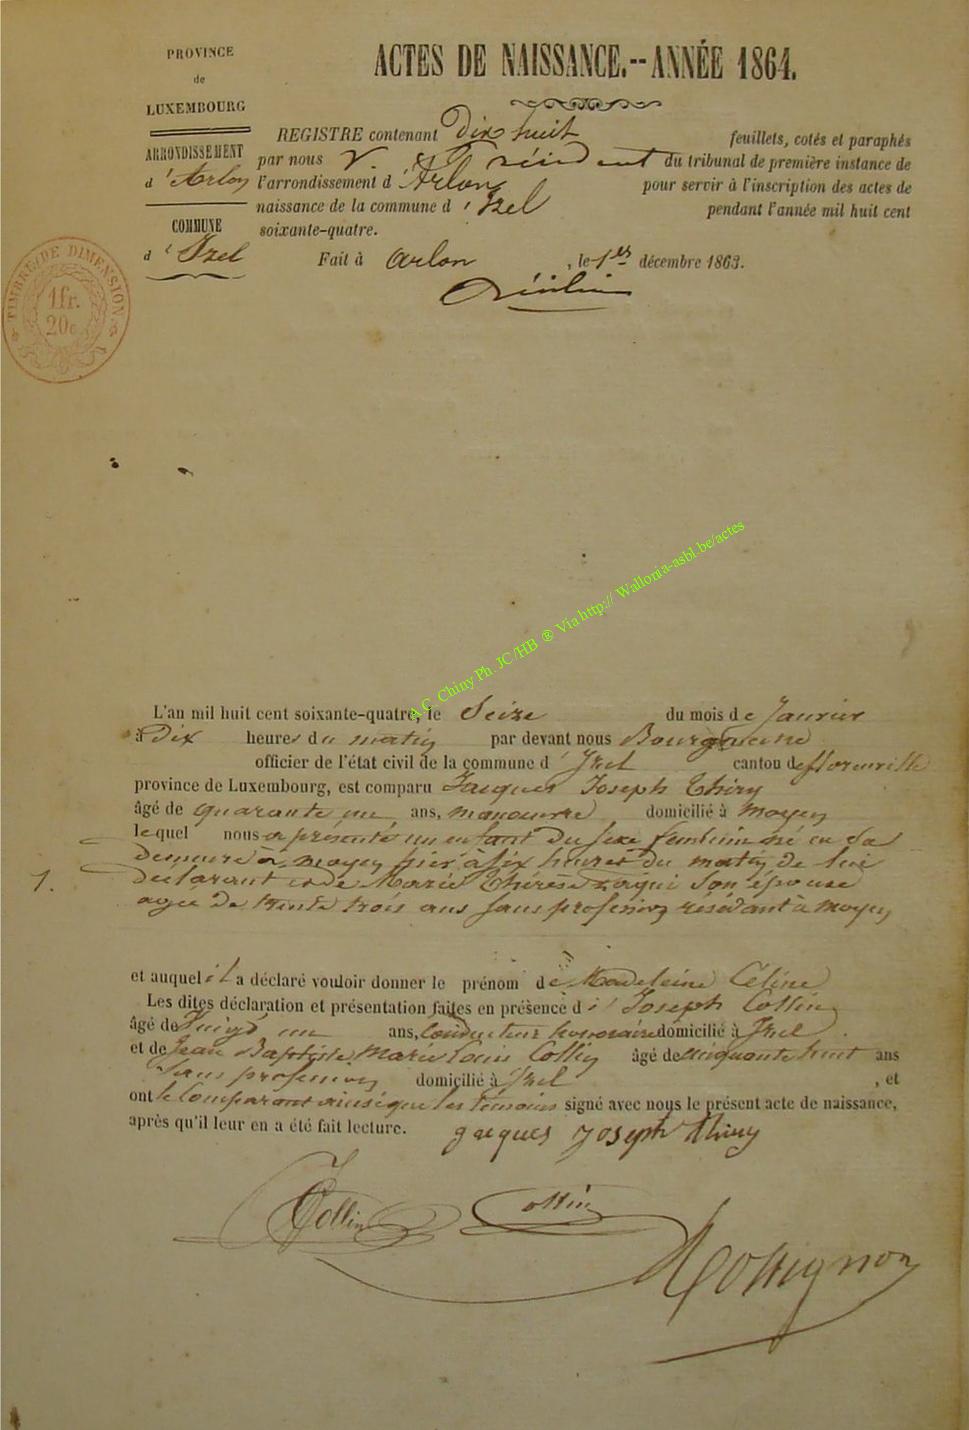 PROVINCE
de
LUXEMBOURG
ARRONDISSEMENT
d'Arlon
COMMUNE
d'Izel
TIMBRE DE DIMENSION
1fr.
20c
ACTES DE NAISSANCE.--ANNÉE 1864.
REGISTRE contenant Dix huit feuillets, cotés et paraphés
par nous V. Président du tribunal de première instance de
l'arrondissement d'Arlon pour servir à l'inscription des actes de
naissance de la commune d'Izel pendant l'année mil huit cent
soixante-quatre.
Fait à Arlon, le 1er décembre 1863.
A.C. Chiny Ph. JC/HB ® Via http:// Wallonia-asbl.be/actes
1.
L'an mil huit cent soixante-quatre, le Seize du mois de Janvier
à Dix heures du matin par devant nous
officier de l'état civil de la commune d'Izel canton de florenville
province de Luxembourg, est comparu Jacques Joseph Thiry
âgé de quarante un ans, manouvrier domicilié à Moyen
lequel nous a présenté un enfant du sexe féminin né en sa
demeure à Moyen hier à six heures du matin de lui
déclarant et de Marie Thérèse son épouse
agée de trente trois ans sans profession résidant à Moyen
et auquel il a déclaré vouloir donner le prénom de Madeleine Céline
Les dites déclaration et présentation faites en présence de Joseph Collin
âgé de Vingt un ans, domicilié à Izel
et de Jean Baptiste Marie Louis Collin âgé de cinquante huit ans
sans profession domicilié à Izel, et
ont le Comparant ainsi que les témoins signé avec nous le présent acte de naissance,
après qu'il leur en a été fait lecture. jacques joseph thiry
Collin Collin